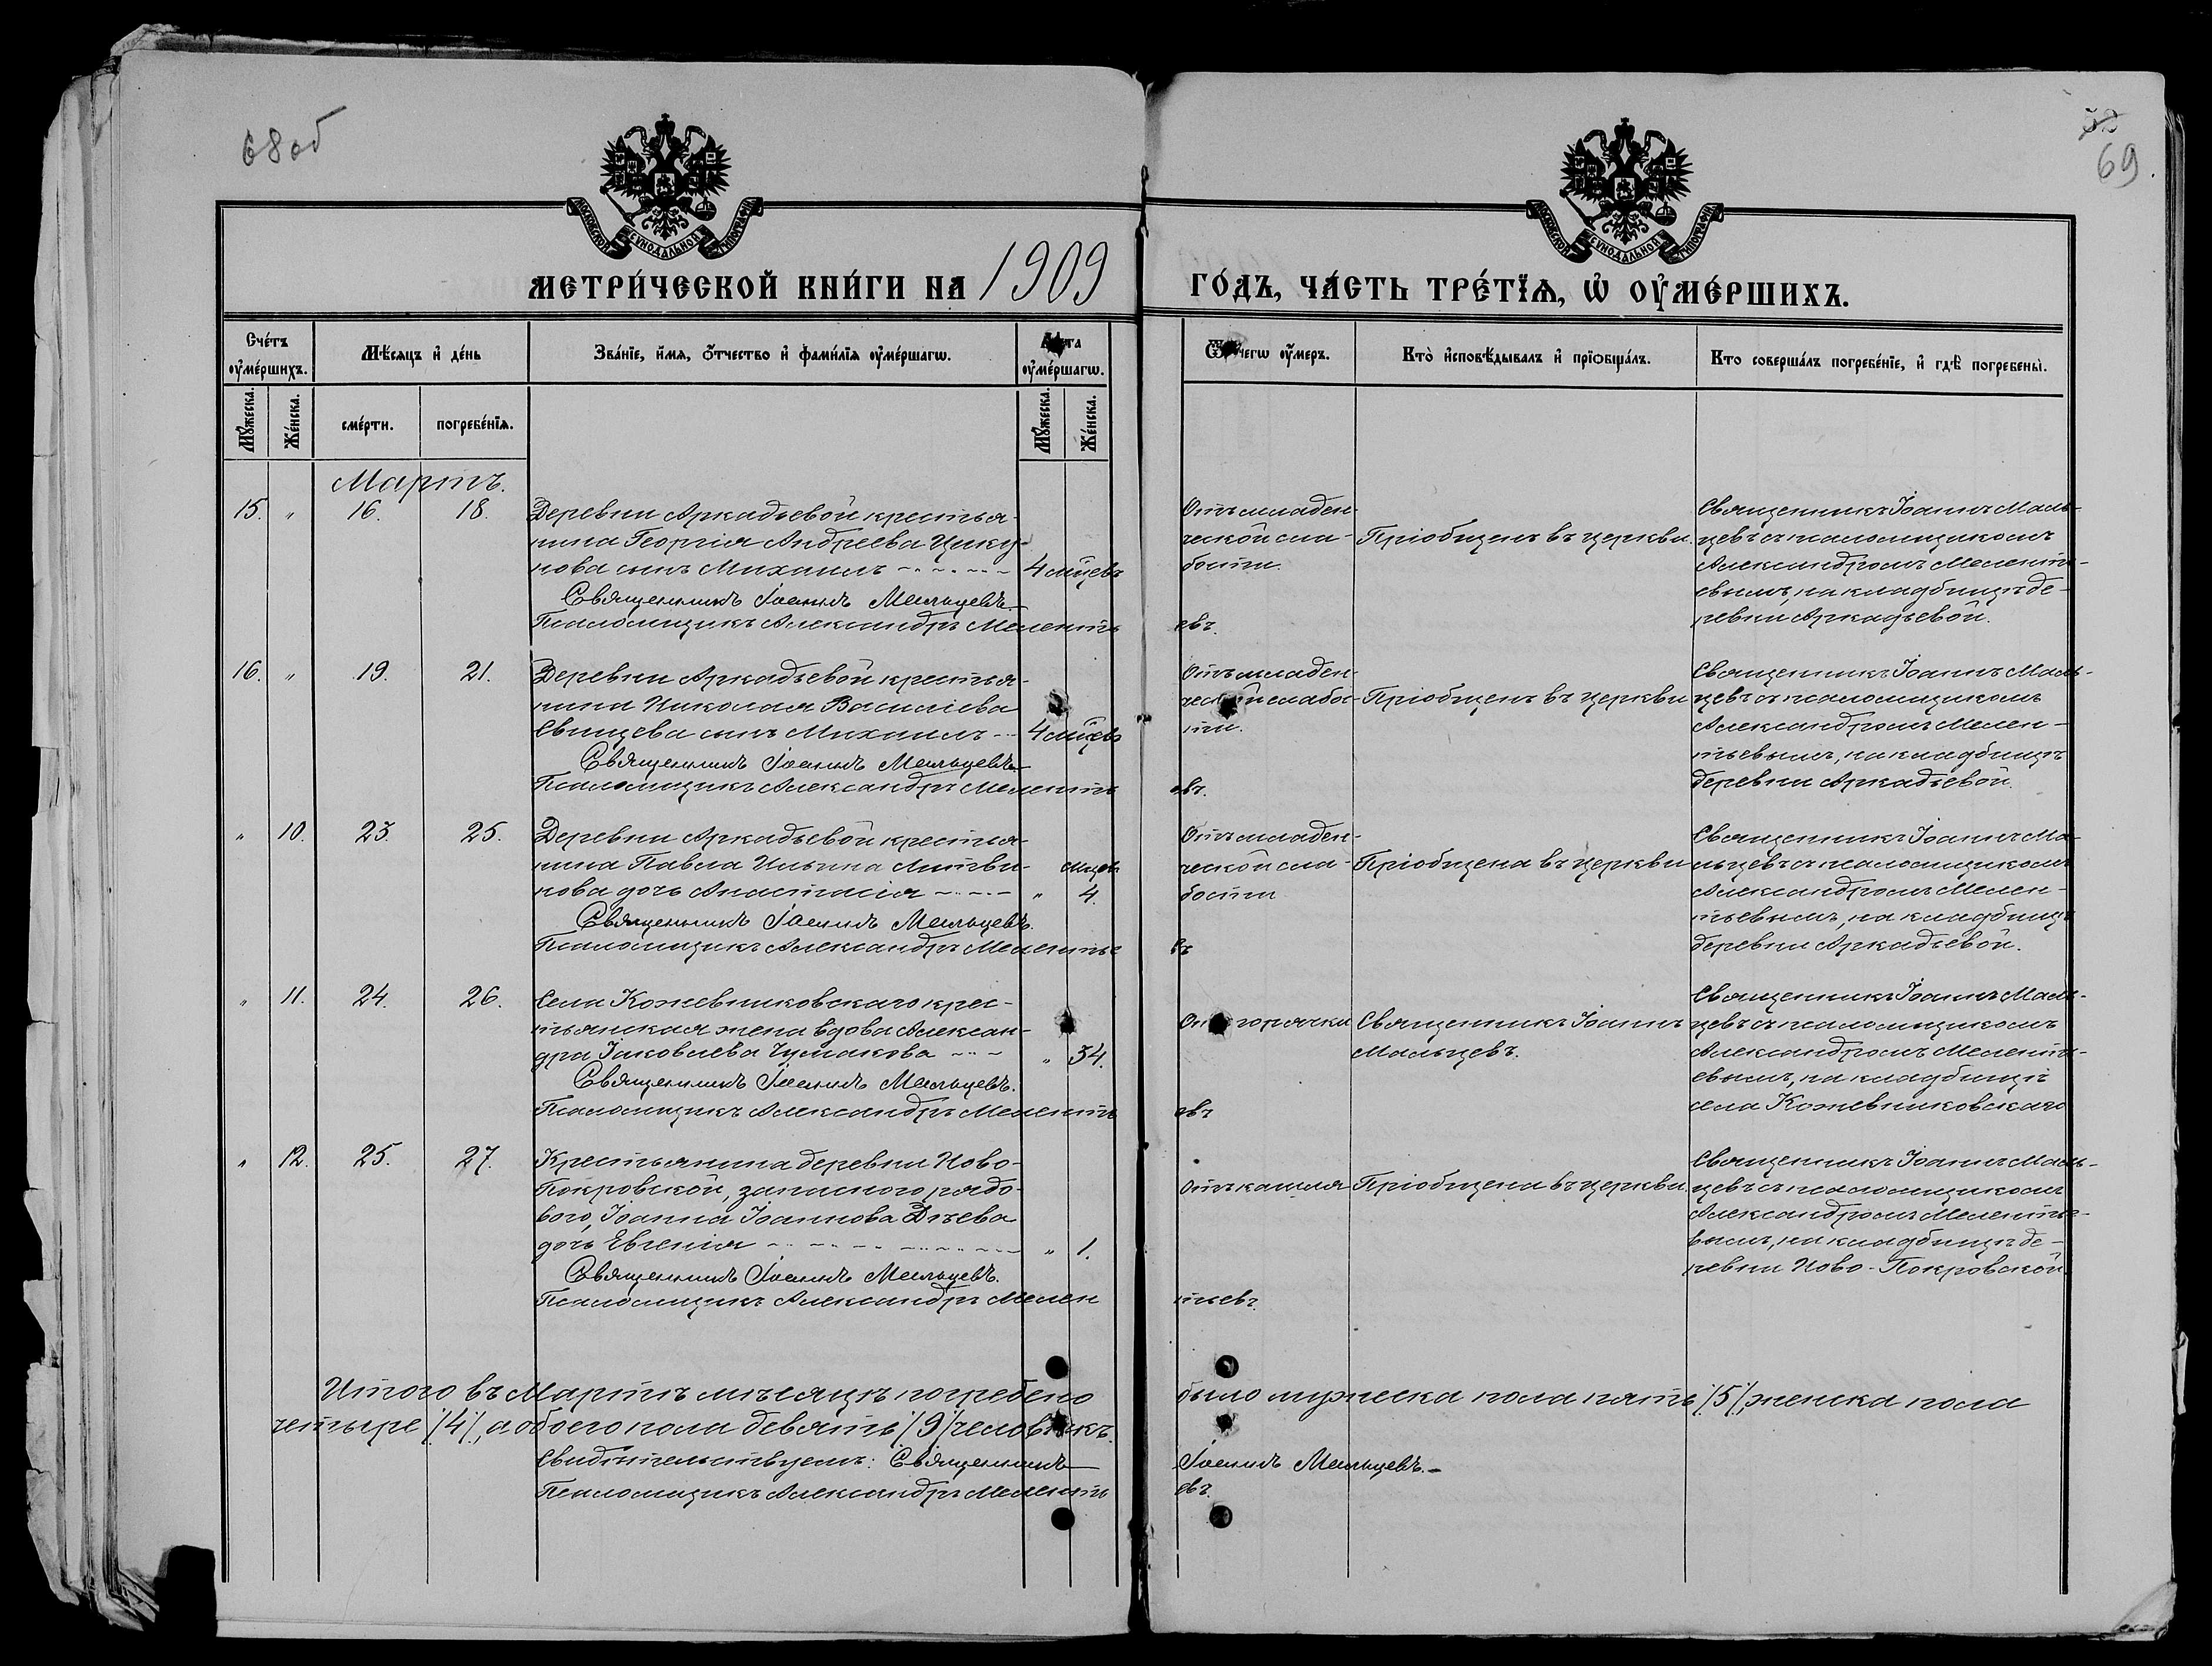 68об
52
69
МОСКОВСКОЙ СѴНОДАЛЬНОЙ ТИПОГРАФІИ
МОСКОВСКОЙ СѴНОДАЛЬНОЙ ТИПОГРАФІИ
МЕТРИ́ЧЕСКОЙ КНИ́ГИ НА 1909 ГО́ДЪ, ЧА́СТЬ ТРЕ́ТІѦ, Ѡ ОУМЕ́РШИХЪ.
Сче́тъ оуме́ршихъ.
Мѣ́сяцъ и де́нь
Зва́нїе, и́мя, о́тчество и фами́лїя оуме́ршагѡ.
Лѣта оуме́ршагѡ.
Ѿ чегѡ оу́меръ.
Кто̀ исповѣ́дывалъ и прїобща́лъ.
Кто соверша́лъ погребе́нїе, и гдѣ̀ погребены̀.
Му́жеска.
Же́нска.
сме́рти.
погребе́нїя.
Му́жеска.
Же́нска.
Мартъ.
15. " 16. 18.
Деревни Аркадьевой крестья-
нина Георгія Андреева Цику-
нова сынъ Михаилъ 4 мѣцевъ
Священникъ Іоаннъ Мальцевъ.
Псаломщикъ Александръ Мелентьевъ.
Отъ младен-
ческой сла-
бости.
Пріобщенъ въ церкви.
Священникъ Іоаннъ Маль-
цевъ съ псаломщикомъ
Александромъ Меленть-
евымъ, на кладбищѣ де-
ревни Аркадьевой.
16. " 19. 21.
Деревни Аркадьевой крестья-
нина Николая Василіева
Свищева сынъ Михаилъ 4 мѣцевъ
Священникъ Іоаннъ Мальцевъ
Псаломщикъ Александръ Мелентьевъ.
Отъ младен-
ческой слабо-
сти.
Пріобщенъ въ церкви
Священникъ Іоаннъ Маль-
цевъ съ псаломщикомъ
Александромъ Мелен-
тьевымъ, на кладбищѣ
деревни Аркадьевой.
" 10. 23. 25.
Деревни Аркадьевой крестья-
нина Павла Ильина Литви-
нова дочь Анастасія " 4. мѣцевъ
Священникъ Іоаннъ Мальцевъ.
Псаломщикъ Александръ Мелентьевъ
Отъ младен-
ческой сла-
бости
Пріобщена въ церкви
Священникъ Іоаннъ Ма-
льцевъ съ псаломщикомъ
Александромъ Мелен-
тьевымъ, на кладбищѣ
деревни Аркадьевой.
" 11. 24. 26.
Села Кожевниковскаго крес-
тьянская жена вдова Алексан-
дра Іаковлева Чумакова " 54.
Священникъ Іоаннъ Мальцевъ.
Псаломщикъ Александръ Мелентьевъ
Отъ горячки
Священникъ Іоаннъ
Мальцевъ.
Священникъ Іоаннъ Маль-
цевъ съ псаломщикомъ
Александромъ Меленть-
евымъ, на кладбищѣ
села Кожевниковскаго
" 12. 25. 27.
Крестьянина деревни Ново-
Покровской, запаснаго рядо-
вого, Іоанна Іоаннова Дѣева
дочь Евгенія " 1.
Священникъ Іоаннъ Мальцевъ.
Псаломщикъ Александръ Мелентьевъ.
Отъ кашля
Пріобщена въ церкви.
Священникъ Іоаннъ Маль-
цевъ съ псаломщикомъ
Александромъ Меленть-
вымъ, на кладбищѣ де-
ревни Ново-Покровской.
Итого въ Мартѣ мѣсяцѣ погребено было мужеска пола пять /5/, женска пола
четыре /4/, а обоего пола девять /9/ человѣкъ.
Свидѣтельствуемъ: Священникъ Іоаннъ Мальцевъ.
Псаломщикъ Александръ Мелентьевъ.